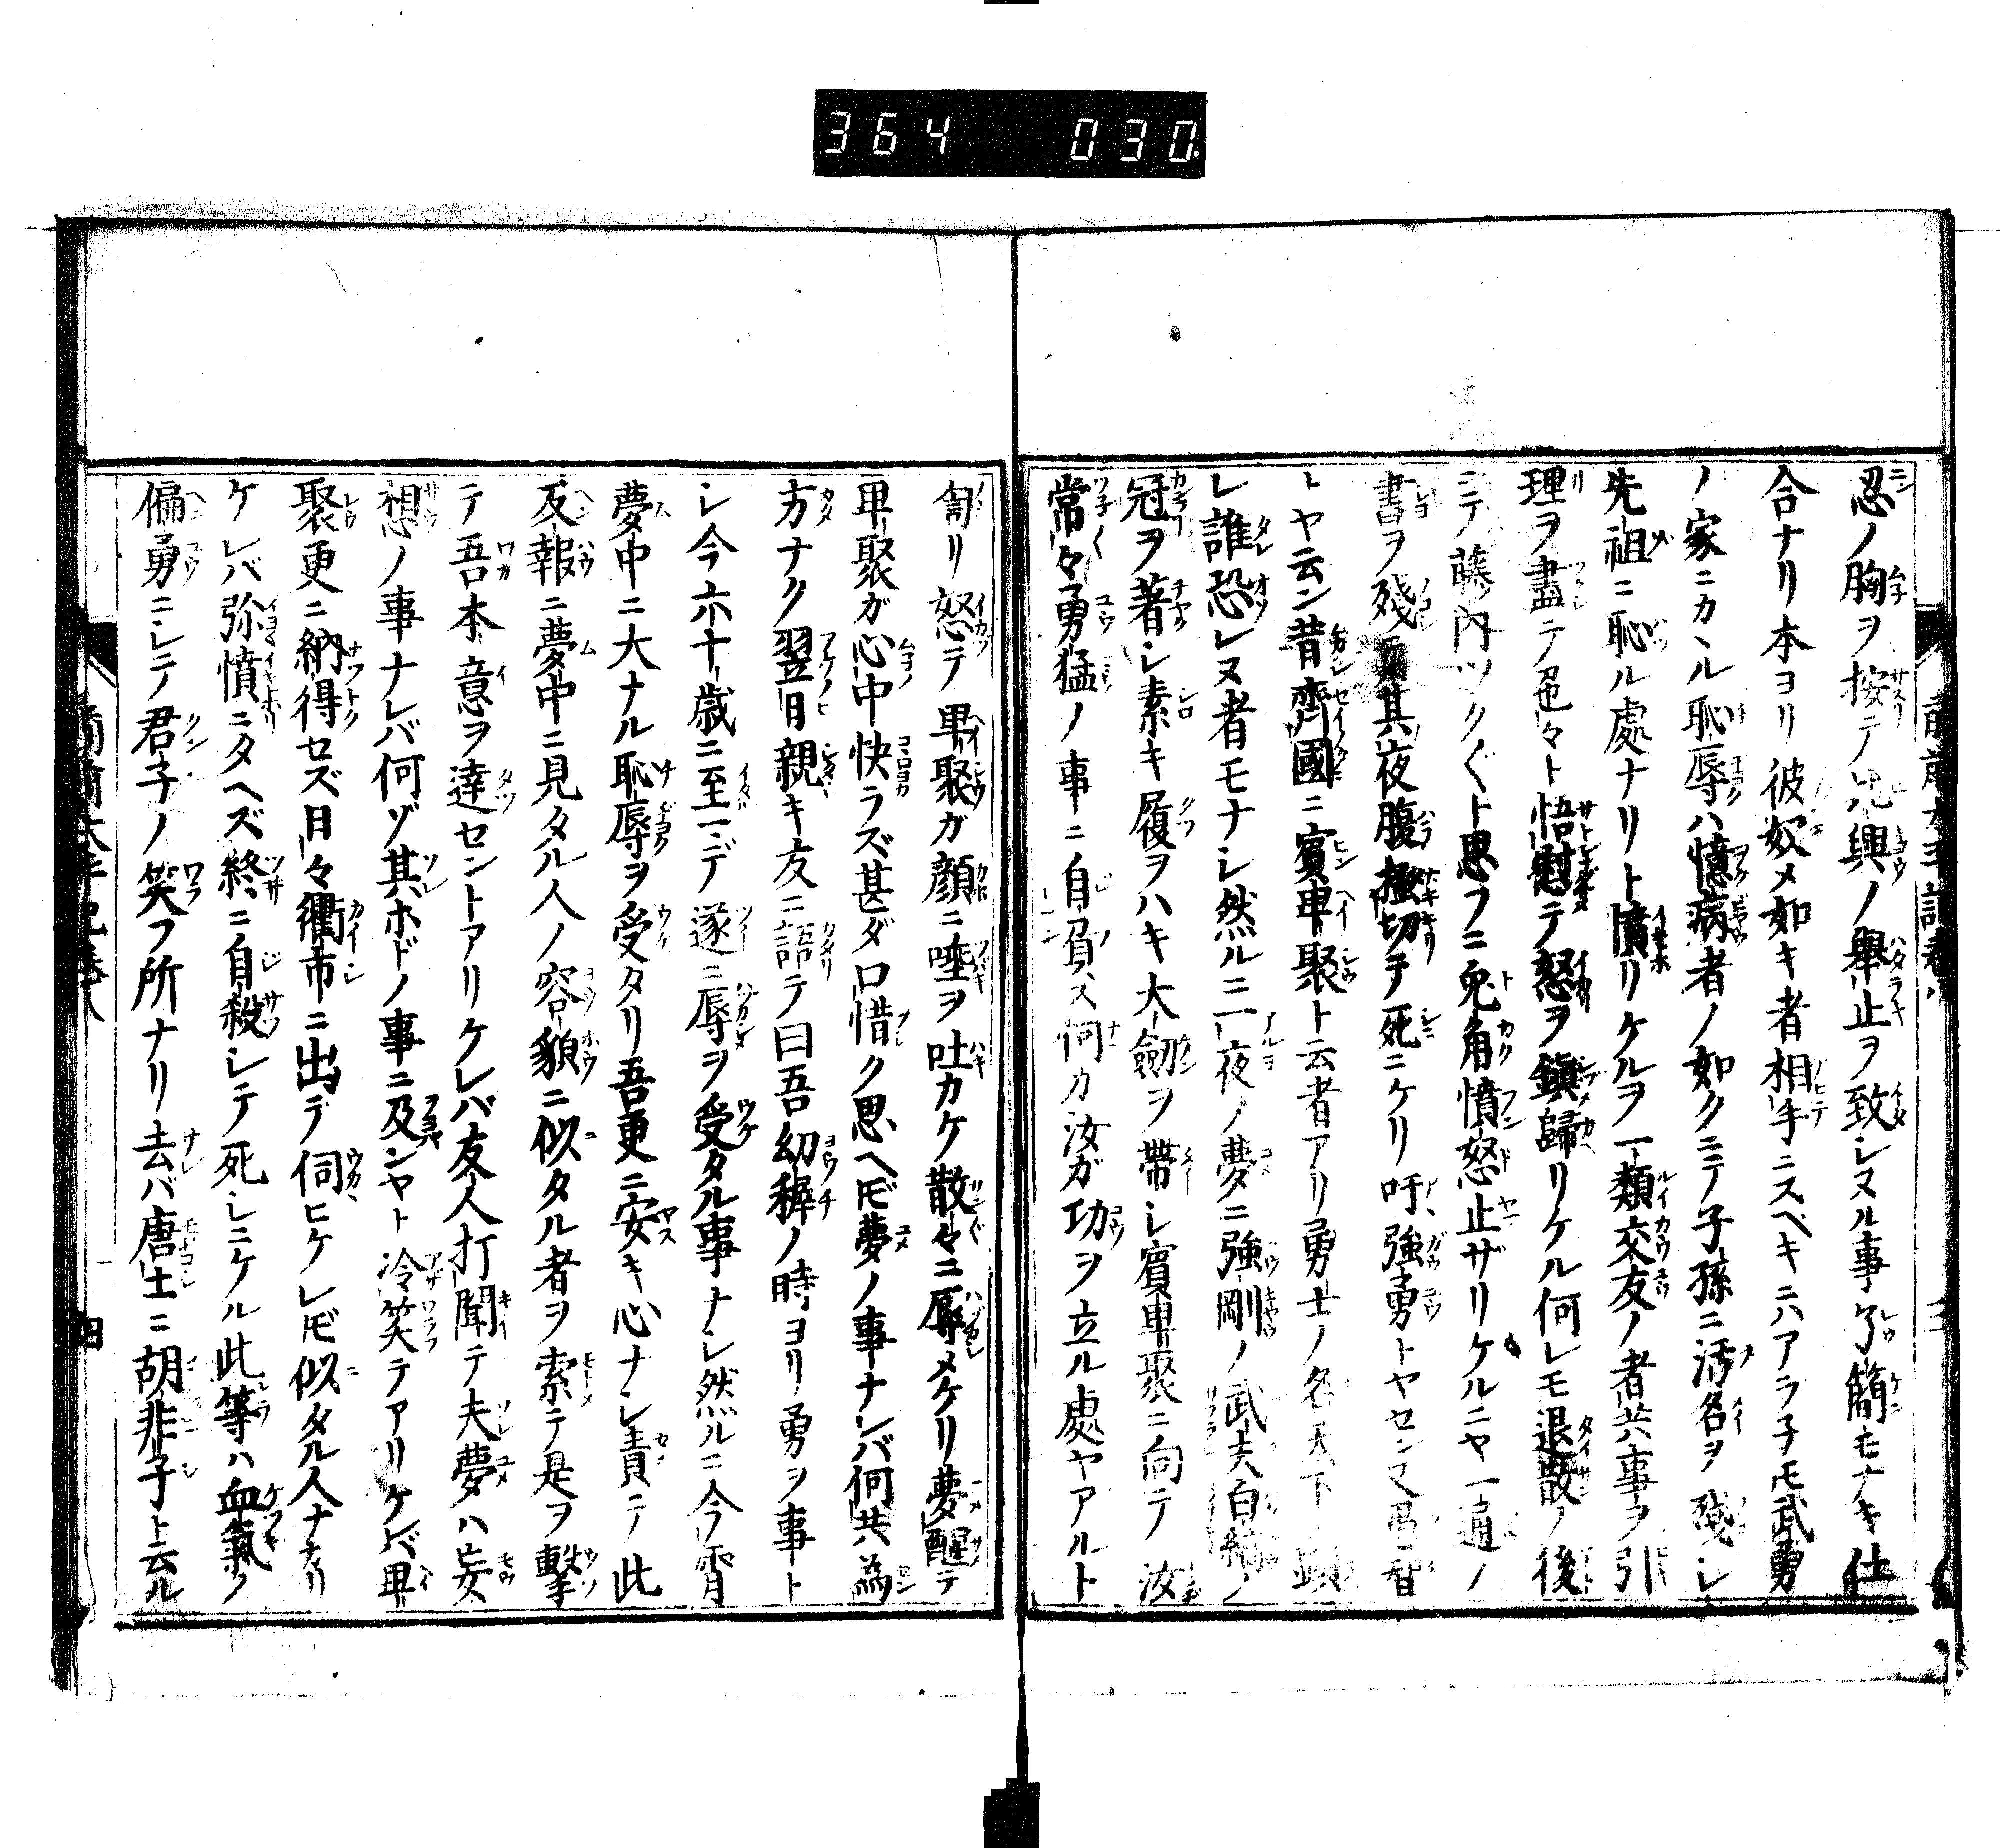 364 030
忍ノ胸ヲ按テ此興ノ舉止ヲ致シヌル事了簡モナキ仕
合ナリ本ヨリ彼奴メ如キ者相手ニスベキニハアラ子㪽武勇
ノ家ニカヽル恥辱ハ憶病者ノ如クニテ子孫ニ汚名ヲ殘シ
先祖ニ恥ル處ナリト憤リケルヲ一類交友ノ者共事ヲ引
理ヲ盡テ色々ト悟慰テ怒ヲ鎭歸リケル何レモ退散ノ後
ニテ藤内ツク〱ト思フニ兎角憤怒止ザリケルニヤ一通ノ
書ヲ殘シ其夜腹搔切テ死ニケリ吁強勇トヤセン又愚智
トヤ云ン昔齊國ニ賓卑聚ト云者アリ勇士ノ名天下ニ顯
レ誰恐レヌ者モナシ然ルニ一夜ノ夢ニ強剛ノ武夫白絹ノ
冠ヲ著シ素キ履ヲハキ大劔ヲ帶シ賓卑聚ニ向テ汝
常々勇猛ノ事ニ自負ス何カ汝ガ功ヲ立ル處ヤアルト
訇リ怒テ卑聚ガ顔ニ唾ヲ吐カケ散々ニ辱メケリ夢醒テ
卑聚ガ心中快ラズ甚ダ口惜ク思ヘ㪽夢ノ事ナレバ何共為
方ナク翌日親キ友ニ語テ曰吾幼稺ノ時ヨリ勇ヲ事ト
シ今六十歳ニ至マデ遂ニ辱ヲ受タル事ナシ然ルニ今宵
夢中ニ大ナル恥辱ヲ受タリ吾更ニ安キ心ナシ責テ此
反報ニ夢中ニ見タル人ノ容貌ニ似タル者ヲ索テ是ヲ擊
テ吾本意ヲ達セントアリケレバ友人打聞テ夫夢ハ妄
想ノ事ナレバ何ゾ其ホドノ事ニ及ンヤト冷笑テアリケバ卑
聚更ニ納得セズ日々衢市ニ出テ伺ヒケレ㪽似タル人ナカリ
ケレバ弥憤ニタヘズ終ニ自殺シテ死シニケル此等ハ血氣ノ
偏勇ニシテ君子ノ笑フ所ナリ去バ唐土ニ胡非子ト云ル